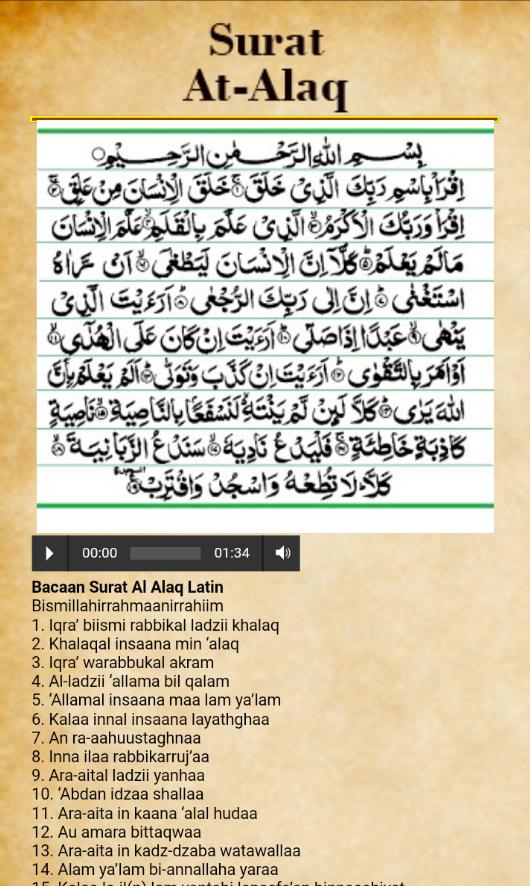 Surat
At-Alaq
بِسْمِ اللّٰهِ الرَّحْمٰنِ الرَّحِيْمِ
اِقْرَاْ بِاسْمِ رَبِّكَ الَّذِيْ خَلَقَ ۚ۝١ خَلَقَ الْاِنْسَانَ مِنْ عَلَقٍ ۚ۝٢
اِقْرَاْ وَرَبُّكَ الْاَكْرَمُ ۙ۝٣ الَّذِيْ عَلَّمَ بِالْقَلَمِ ۙ۝٤ عَلَّمَ الْاِنْسَانَ
مَالَمْ يَعْلَمْ ۗ۝٥ كَلَّآ اِنَّ الْاِنْسَانَ لَيَطْغٰىٓ ۙ۝٦ اَنْ رَّاٰهُ
اسْتَغْنٰى ۗ۝٧ اِنَّ اِلٰى رَبِّكَ الرُّجْعٰى ۗ۝٨ اَرَءَيْتَ الَّذِيْ
يَنْهٰى ۙ۝٩ عَبْدًا اِذَا صَلّٰى ۗ۝١٠ اَرَءَيْتَ اِنْ كَانَ عَلَى الْهُدٰىٓ ۙ۝١١
اَوْ اَمَرَ بِالتَّقْوٰى ۗ۝١٢ اَرَءَيْتَ اِنْ كَذَّبَ وَتَوَلّٰى ۗ۝١٣ اَلَمْ يَعْلَمْ بِاَنَّ
اللّٰهَ يَرٰى ۗ۝١٤ كَلَّا لَىِٕنْ لَّمْ يَنْتَهِ ۙ لَنَسْفَعًا بِالنَّاصِيَةِ ۙ۝١٥ نَاصِيَةٍ
كَاذِبَةٍ خَاطِئَةٍ ۚ۝١٦ فَلْيَدْعُ نَادِيَهٗ ۙ۝١٧ سَنَدْعُ الزَّبَانِيَةَ ۙ۝١٨
كَلَّا ۗ لَا تُطِعْهُ وَاسْجُدْ وَاقْتَرِبْ ۝١٩
00:00 01:34
Bacaan Surat Al Alaq Latin
Bismillahirrahmaanirrahiim
1. Iqra’ biismi rabbikal ladzii khalaq
2. Khalaqal insaana min ‘alaq
3. Iqra’ warabbukal akram
4. Al-ladzii ‘allama bil qalam
5. ‘Allamal insaana maa lam ya’lam
6. Kalaa innal insaana layathghaa
7. An ra-aahuustaghnaa
8. Inna ilaa rabbikarruj’aa
9. Ara-aital ladzii yanhaa
10. ‘Abdan idzaa shallaa
11. Ara-aita in kaana ‘alal hudaa
12. Au amara bittaqwaa
13. Ara-aita in kadz-dzaba watawallaa
14. Alam ya’lam bi-annallaha yaraa